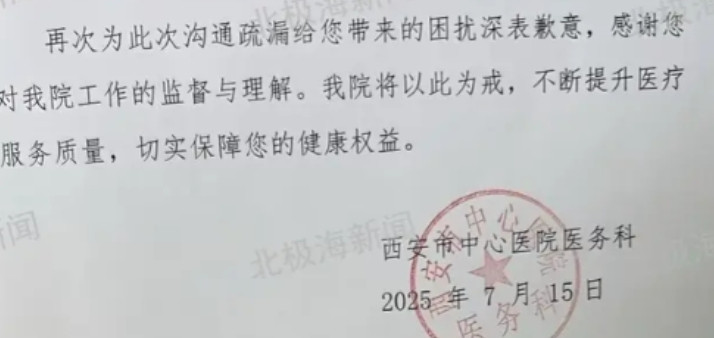 再次为此次沟通疏漏给您带来的困扰深表歉意，感谢您
对我院工作的监督与理解。我院将以此为戒，不断提升医疗
服务质量，切实保障您的健康权益。
北极海新闻
新闻
西安市中心医院医务科
2025 年 7 月 15 日
西安市中心医院
医务科